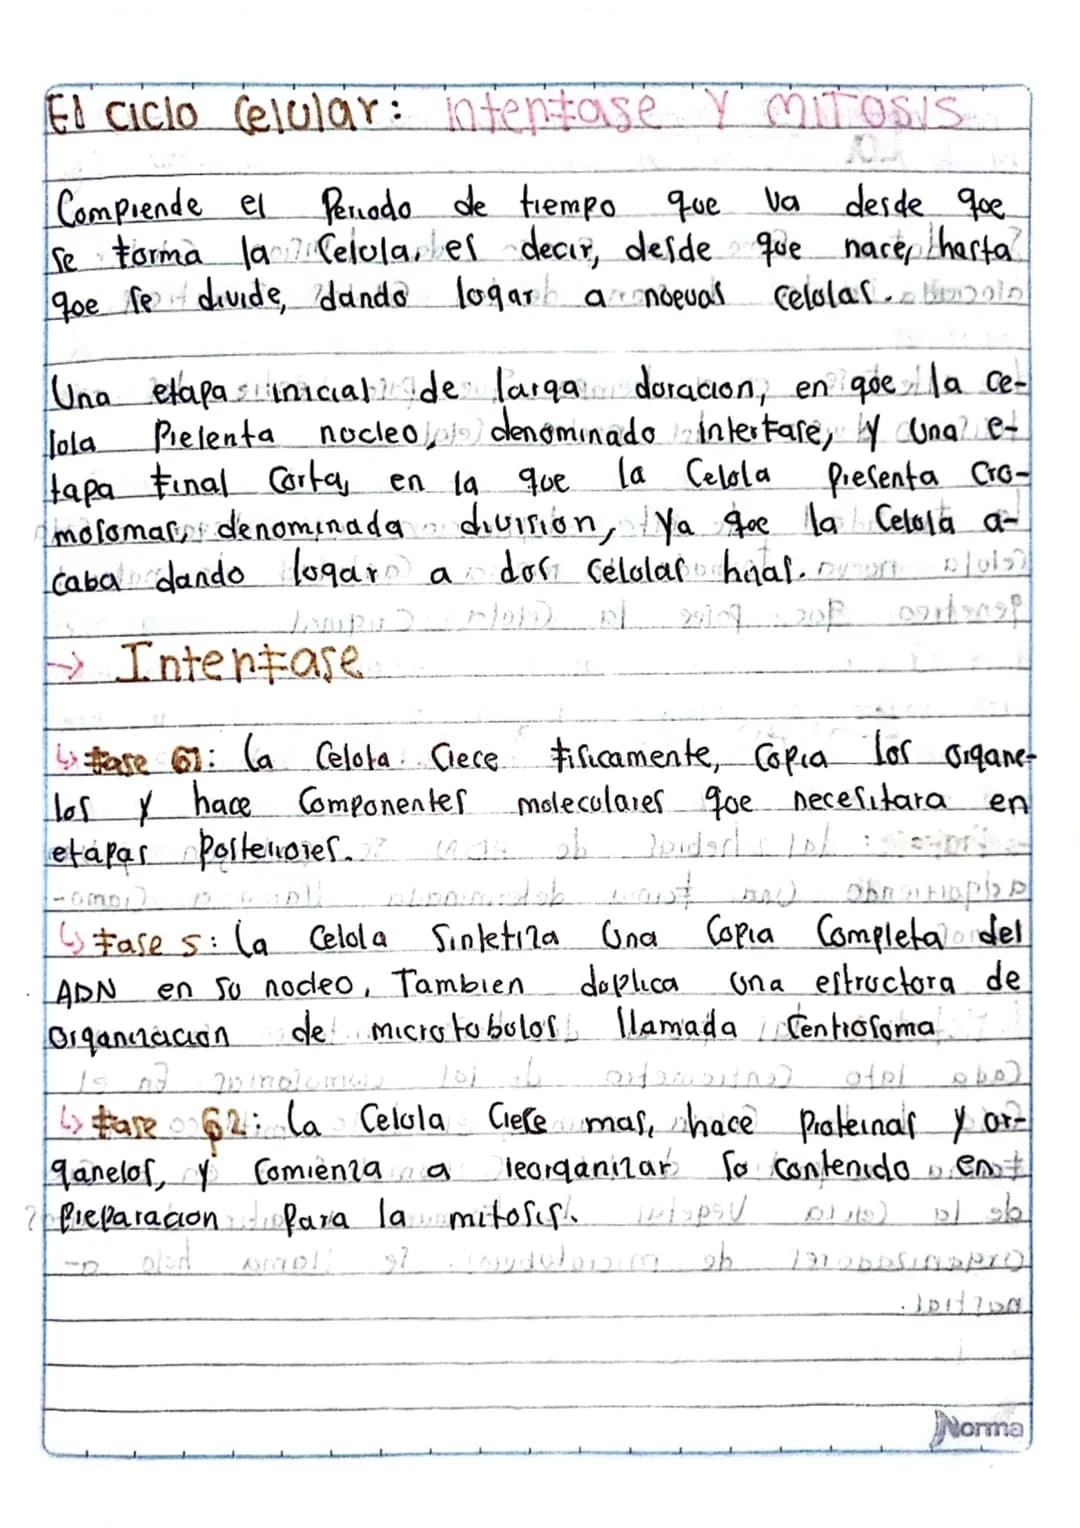 El ciclo Celular: intenfase Y MITOSIS
Comprende el Periodo de tiempo que va desde que
se forma la Celula, es decir, desde que nace, hasta
que se divide, dando lugar a nuevas celulas.
Una etapa inicial de larga duracion, en que la ce-
lula Presenta nucleo, denominado interfase, y una e-
tapa final Corta, en la que la Celula Presenta Cro-
mosomas, denominada division, Ya que la Celula a-
caba dando lugar a dos celulas hijas.
→ Intenfase
↳ fase G1: La Celula Crece fisicamente, Copia los organe-
los y hace Componentes moleculares que necesitara en
etapas Posteriores.
↳ fase S: La Celula Sintetiza Una Copia Completa del
ADN en su nucleo, Tambien duplica una estructura de
Organizacion de microtubulos llamada Centrosoma
↳ fase G2: La Celula Crece mas, hace Proteinas y or-
ganelos, y Comienza a reorganizar su contenido en
Preparacion Para la mitosis.
Norma